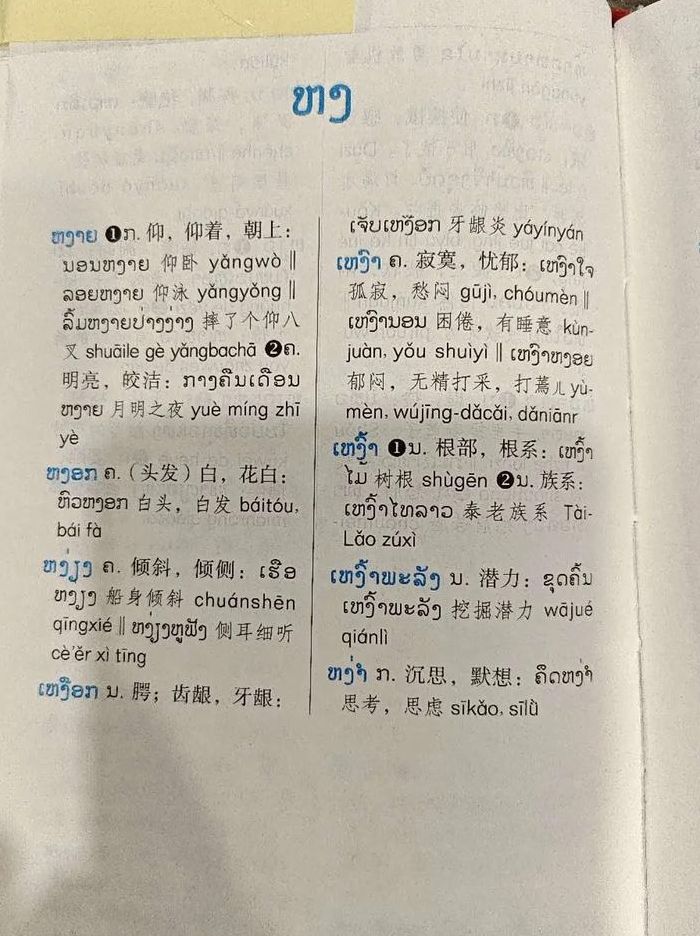 ຫງ
ຫງາຍ ❶ກ. 仰, 仰着, 朝上:
ນອນຫງາຍ 仰卧 yǎngwò ‖
ລອຍຫງາຍ 仰泳 yǎngyǒng ‖
ລົ້ມຫງາຍປ່າງງ່າງ 摔了个仰八
叉 shuāile gè yǎngbachā ❷ຄ.
明亮, 皎洁: ກາງຄືນເດືອນ
ຫງາຍ 月明之夜 yuè míng zhī
yè
ຫງອກ ຄ. (头发) 白, 花白:
ຫົວຫງອກ 白头, 白发 báitóu,
bái fà
ຫງ່ຽງ ຄ. 倾斜, 倾侧: ເຮືອ
ຫງຽງ 船身倾斜 chuánshēn
qīngxié ‖ ຫງ່ຽງຫູຟັງ 侧耳细听
cè'ěr xì tīng
ເຫງືອກ ນ. 腭; 齿龈, 牙龈:
ເຈັບເຫງືອກ 牙龈炎 yáyínyán
ເຫງົາ ຄ. 寂寞, 忧郁: ເຫງົາໃຈ
孤寂, 愁闷 gūjì, chóumèn ‖
ເຫງົານອນ 困倦, 有睡意 kùn-
juàn, yǒu shuìyì ‖ ເຫງົາຫງອຍ
郁闷, 无精打采, 打蔫儿 yù-
mèn, wújīng-dǎcǎi, dǎniānr
ເຫງົ້າ ❶ນ. 根部, 根系: ເຫງົ້າ
ໄມ້ 树根 shùgēn ❷ນ. 族系:
ເຫງົ້າໄທລາວ 泰老族系 Tài-
Lǎo zúxì
ເຫງົ້າພະລັງ ນ. 潜力: ຂຸດຄົ້ນ
ເຫງົ້າພະລັງ 挖掘潜力 wājué
qiánlì
ຫງ່ຳ ກ. 沉思, 默想: ຄິດຫງ່ຳ
思考, 思虑 sīkǎo, sīlǜ